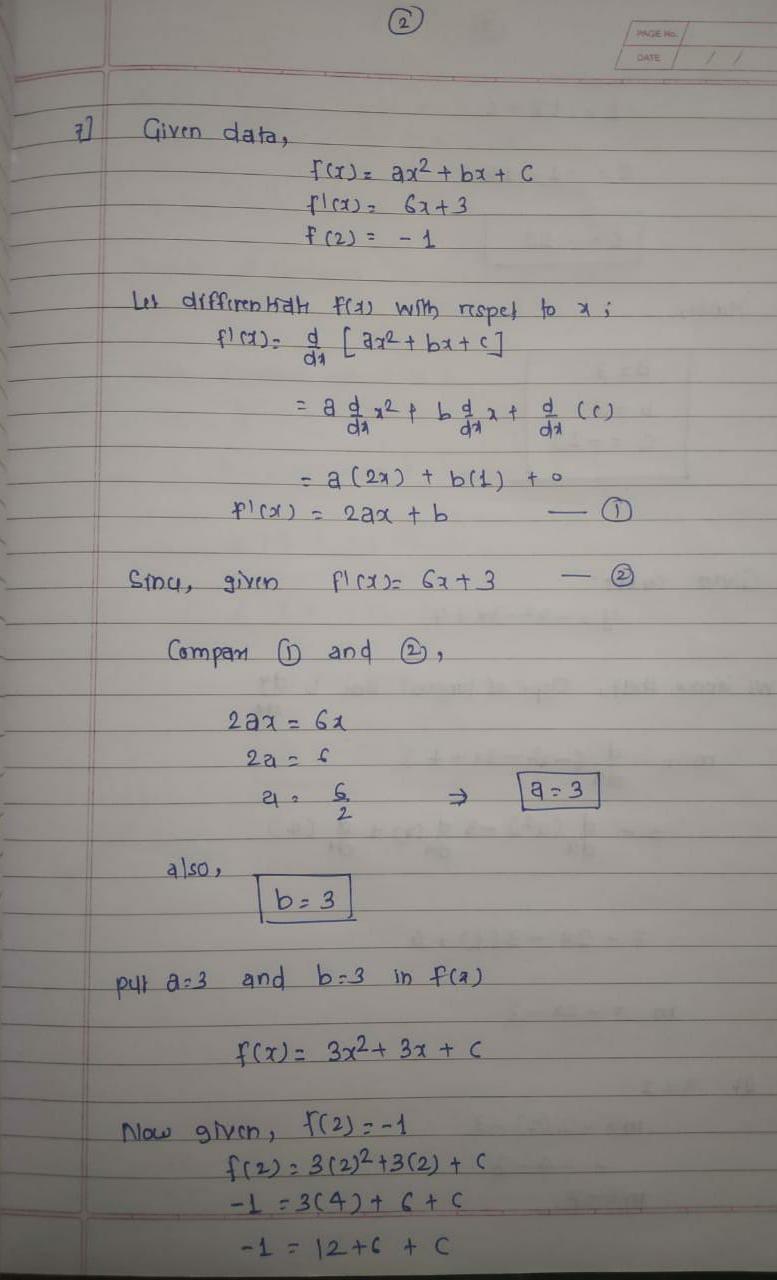 ②
PAGE No.
DATE / /
7] Given data,
f(x) = ax² + bx + c
f'(x) = 6x + 3
f(2) = - 1
Let differentiate f(x) with respet to x ;
f'(x) = d/dx [ax² + bx + c]
= a d/dx x² + b d/dx x + d/dx (c)
= a(2x) + b(1) + 0
f'(x) = 2ax + b — ①
Since, given f'(x) = 6x + 3 — ②
Compare ① and ②,
2ax = 6x
2a = 6
a = 6/2 ⇒ a = 3
also,
b = 3
put a=3 and b=3 in f(x)
f(x) = 3x² + 3x + c
Now given, f(2) = -1
f(2) = 3(2)² + 3(2) + c
-1 = 3(4) + 6 + c
-1 = 12 + 6 + c